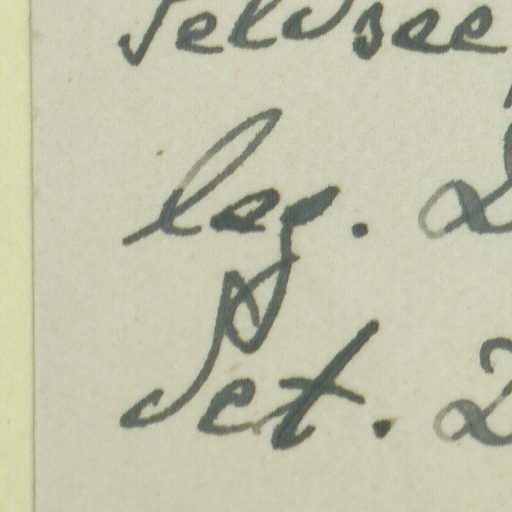 Feldsee
leg.
det.